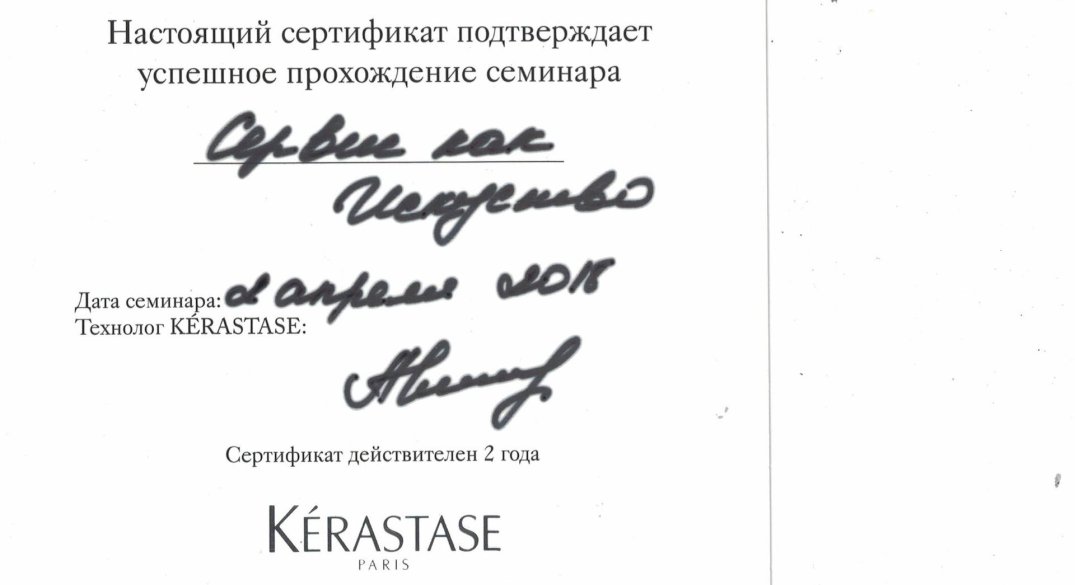 Настоящий сертификат подтверждает
успешное прохождение семинара
Сервис как
Искусство
Дата семинара: 2 апреля 2018
Технолог KÉRASTASE:
Сертификат действителен 2 года
KÉRASTASE
PARIS